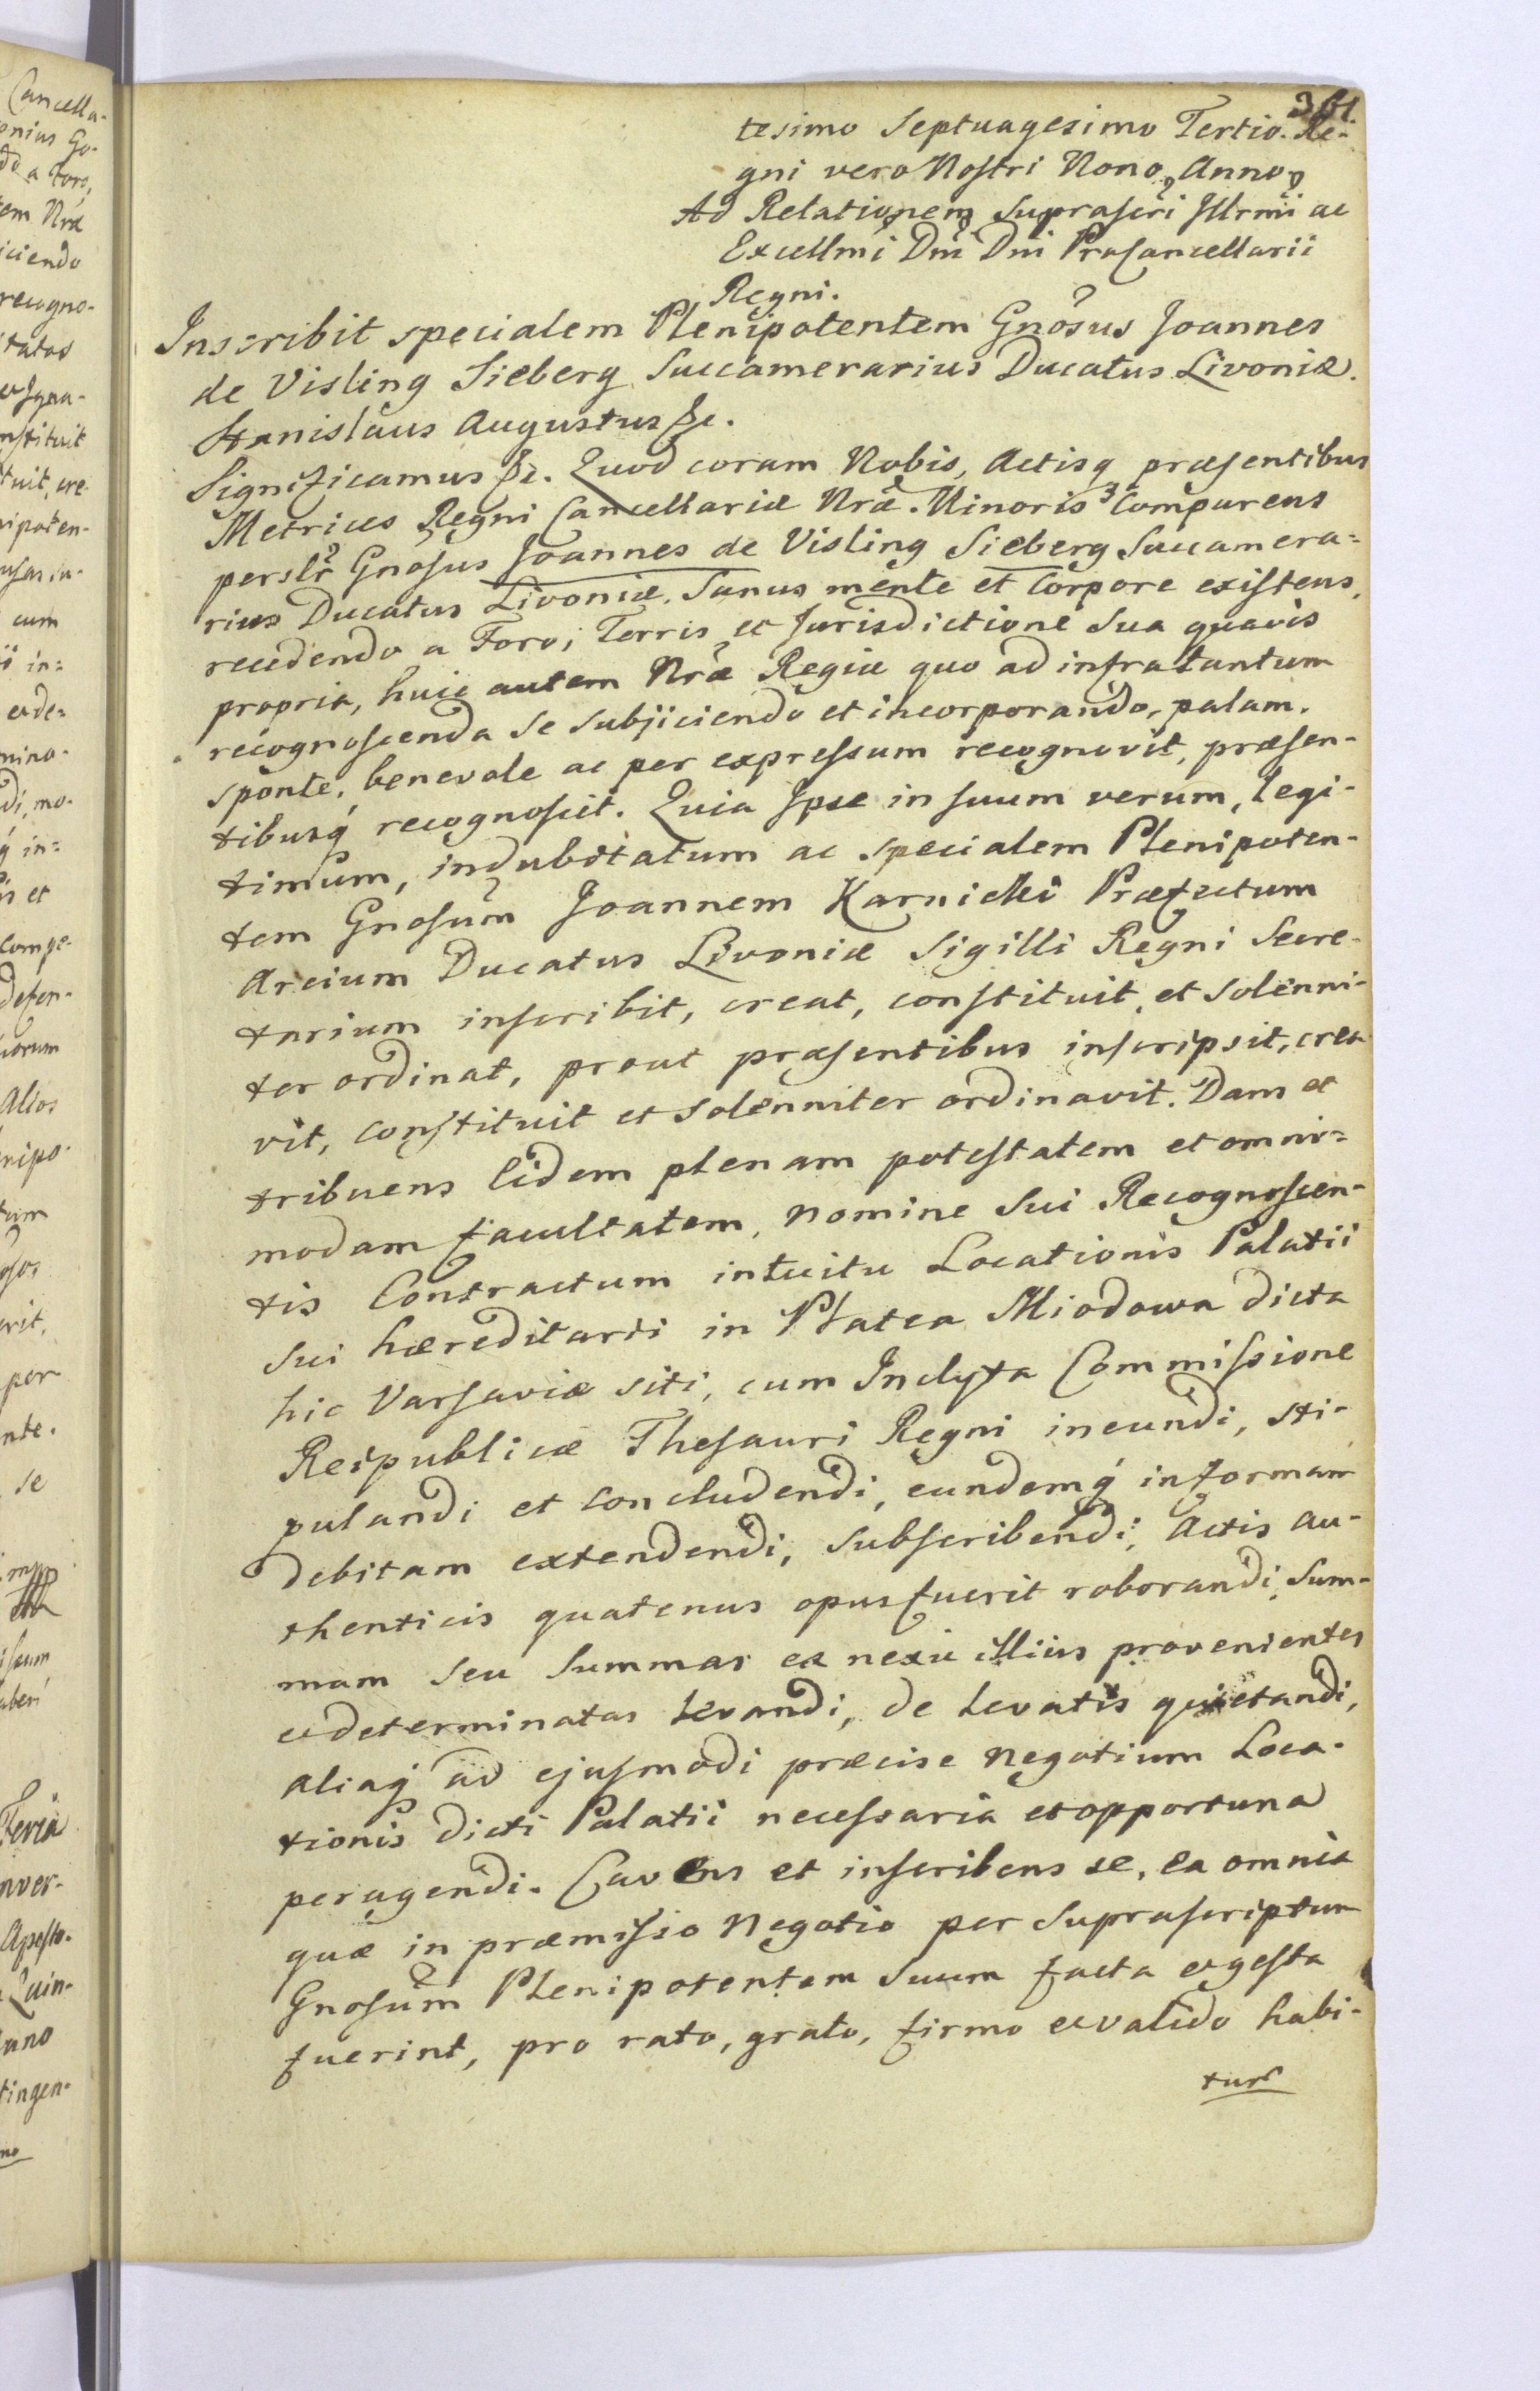 361.
tesimo Septuagesimo Tertio. Re-
gni vero Nostri Nono, Anno,
Ad Relationem Suprascri Illrmi ac
Excellmi Dni Dni ProCancellarii
Regni.
Inscribit specialem Plenipotentem Gnosus Joannes
de Visling Sieberg Succamerarius Ducatus Livoniæ.
Stanislaus Augustus &c.
Significamus &c. Quod coram Nobis, Actisq præsentibus
Metrices Regni Cancellariæ Nræ. Minoris Comparens
perslr Gnosus Joannes de Visling Sieberg Succamera-
rius Ducatus Livoniæ, Sanus mente et Corpore existens,
recedendo a Foro, Terris et Jurisdictione Sua quavis
propria, huic autem Nræ Regiæ quo ad infratantum
recognoscenda se subjiciendo et incorporando, palam.
sponte, benevole ac per expressum recognovit, præsen-
tibusq recognoscit. Quia Ipse in suum verum, legi-
timum, indubitatum ac specialem Plenipoten-
tem Gnosum Joannem Karnicki Præfectum
Arcium Ducatus Livoniæ Sigilli Regni Secre-
tarium inscribit, creat, constituit, et solenni-
ter ordinat, prout præsentibus inscripsit, crea
vit, constituit et solenniter ordinavit. Dans et
tribuens Eidem plenam potestatem et omni-
modam facultatem, nomine Sui Recognoscen-
tis Contractum intuitu Locationis Palatii
Sui hæreditarii in Platea Miodowa dicta
hic Varsaviæ siti, cum Inclyta Commissione
Reipublicæ Thesauri Regni ineundi, sti-
pulandi et concludendi, eundemq in formam
debitam extendendi, subscribendi, Actis au-
thenticis quatenus opus fuerit roborandi, Sum-
mam seu Summas ex nexu illius provenientes
et determinatas levandi, de levatis quietandi,
aliaq ad ejusmodi præcise negotium Loca-
tionis dicti Palatii necessaria et opportuna
peragendi. Cavens et inscribens se, ea omnia
quæ in præmisso Negotio per Suprascriptum
Gnosum Plenipotentem Suum facta et gesta
fuerint, pro rato, grato, firmo et valido habi-
turn